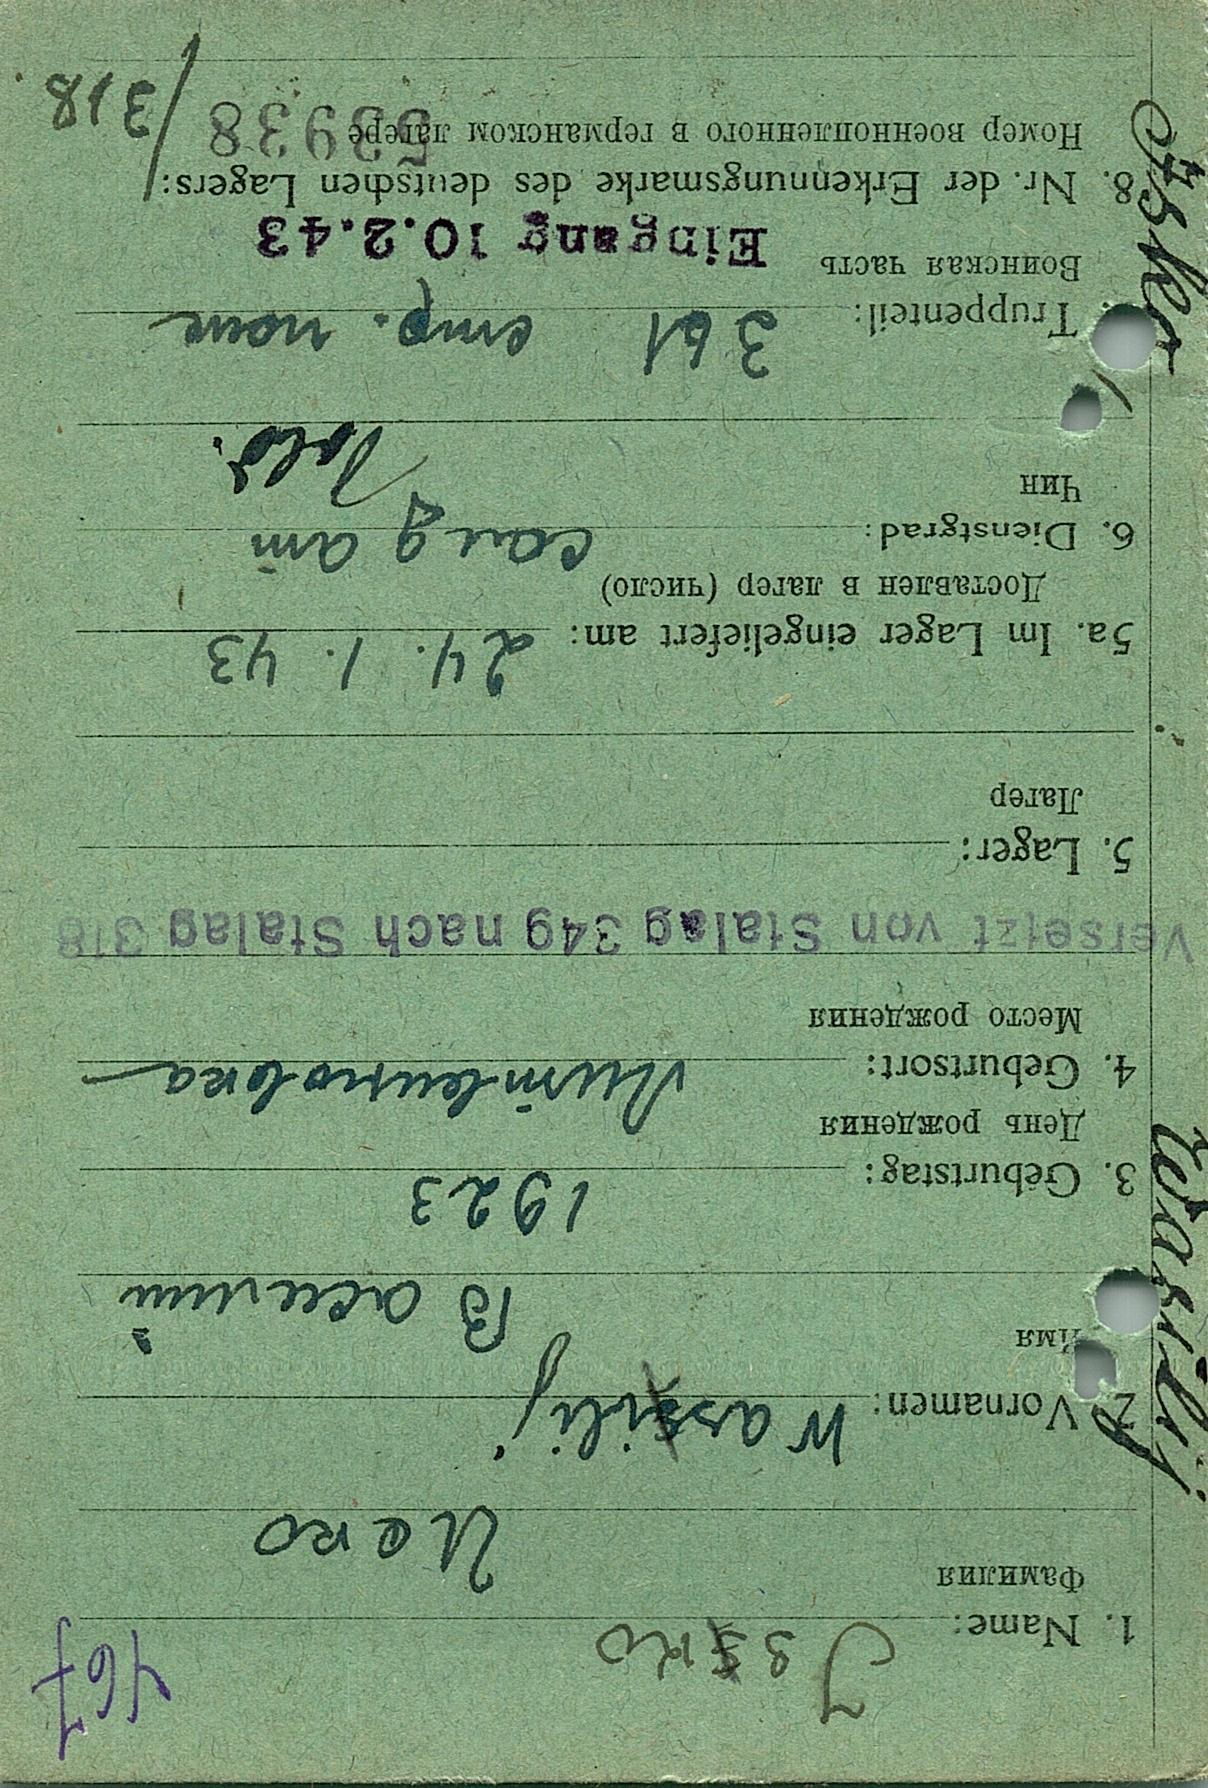 467
1. Name: Issko
Фамилия
Иско
2. Vornamen: Wassilij
Имя
Василий
3. Geburtstag: 1923
День рождения
4. Geburtsort: Литвиновка
Место рождения
Versetzt von Stalag 349 nach Stalag 318
5. Lager:
Лагер
5a. Im Lager eingeliefert am: 24. 1. 43
Доставлен в лагер (число)
6. Dienstgrad: солдат
Чин
Sold.
Truppenteil: 361 стр. полк
Воинская часть
Eingang 10.2.43
8. Nr. der Erkennungsmarke des deutschen Lagers:
Номер военнопленного в германском лагере
53938 /318
Isko
Wasilij